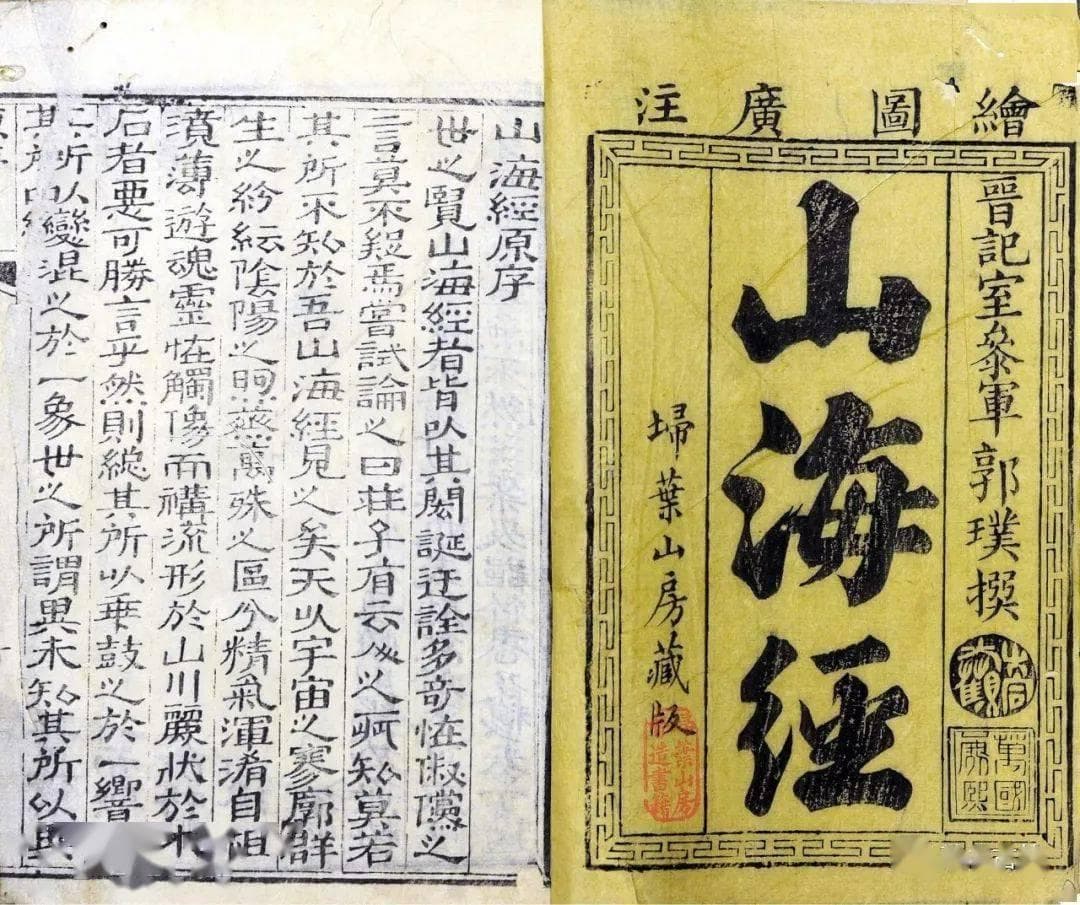 繪圖廣注
晉記室叅軍郭璞撰
山海經
埽葉山房藏版
山海經原序
世之賢山海經者皆以其閎誕迂誇多奇怪俶儻之
言莫不疑焉嘗試論之曰莊子有云人之所知莫若
其所不知於吾山海經見之矣夫以宇宙之寥廓群
生之紛紜陰陽之煦蒸萬殊之區分精氣渾淆自相
濆薄遊魂靈怪觸像而構流形於山川麗狀於木
石者惡可勝言乎然則總其所以乖鼓之於一響
所以變混之於一象世之所謂異未知其所以異